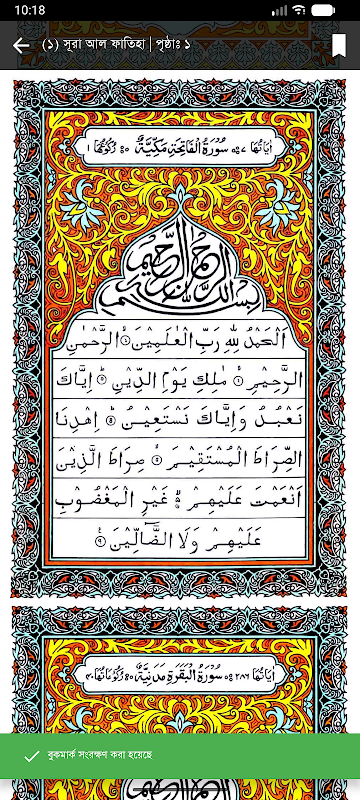 10:18
(১) সূরা আল ফাতিহা | পৃষ্ঠাঃ ১
اٰيَاتُهَا ٧ سُوْرَةُ الْفَاتِحَةِ مَكِّيَّةٌ رُكُوْعُهَا ١
بِسْمِ اللهِ الرَّحْمٰنِ الرَّحِيْمِ
اَلْحَمْدُ لِلّٰهِ رَبِّ الْعٰلَمِيْنَ الرَّحْمٰنِ
الرَّحِيْمِ مٰلِكِ يَوْمِ الدِّيْنِ اِيَّاكَ
نَعْبُدُ وَاِيَّاكَ نَسْتَعِيْنُ اِهْدِنَا
الصِّرَاطَ الْمُسْتَقِيْمَ صِرَاطَ الَّذِيْنَ
اَنْعَمْتَ عَلَيْهِمْ غَيْرِ الْمَغْضُوْبِ
عَلَيْهِمْ وَلَا الضَّآلِّيْنَ
اٰيَاتُهَا ٢٨٦ سُوْرَةُ الْبَقَرَةِ مَدَنِيَّةٌ رُكُوْعَاتُهَا ٤٠
বুকমার্ক সংরক্ষণ করা হয়েছে